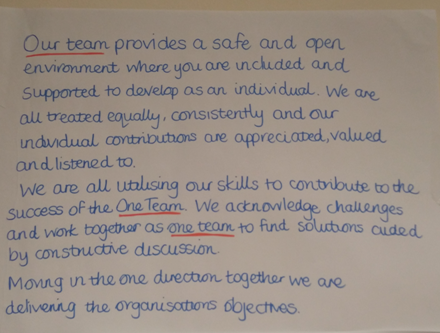 Our team provides a safe and open
environment where you are included and
supported to develop as an individual. We are
all treated equally, consistently and our
individual contributions are appreciated, valued
and listened to.
We are all utilising our skills to contribute to the
success of the One Team. We acknowledge challenges
and work together as one team to find solutions aided
by constructive discussion.
Moving in the one direction together we are
delivering the organisations objectives.